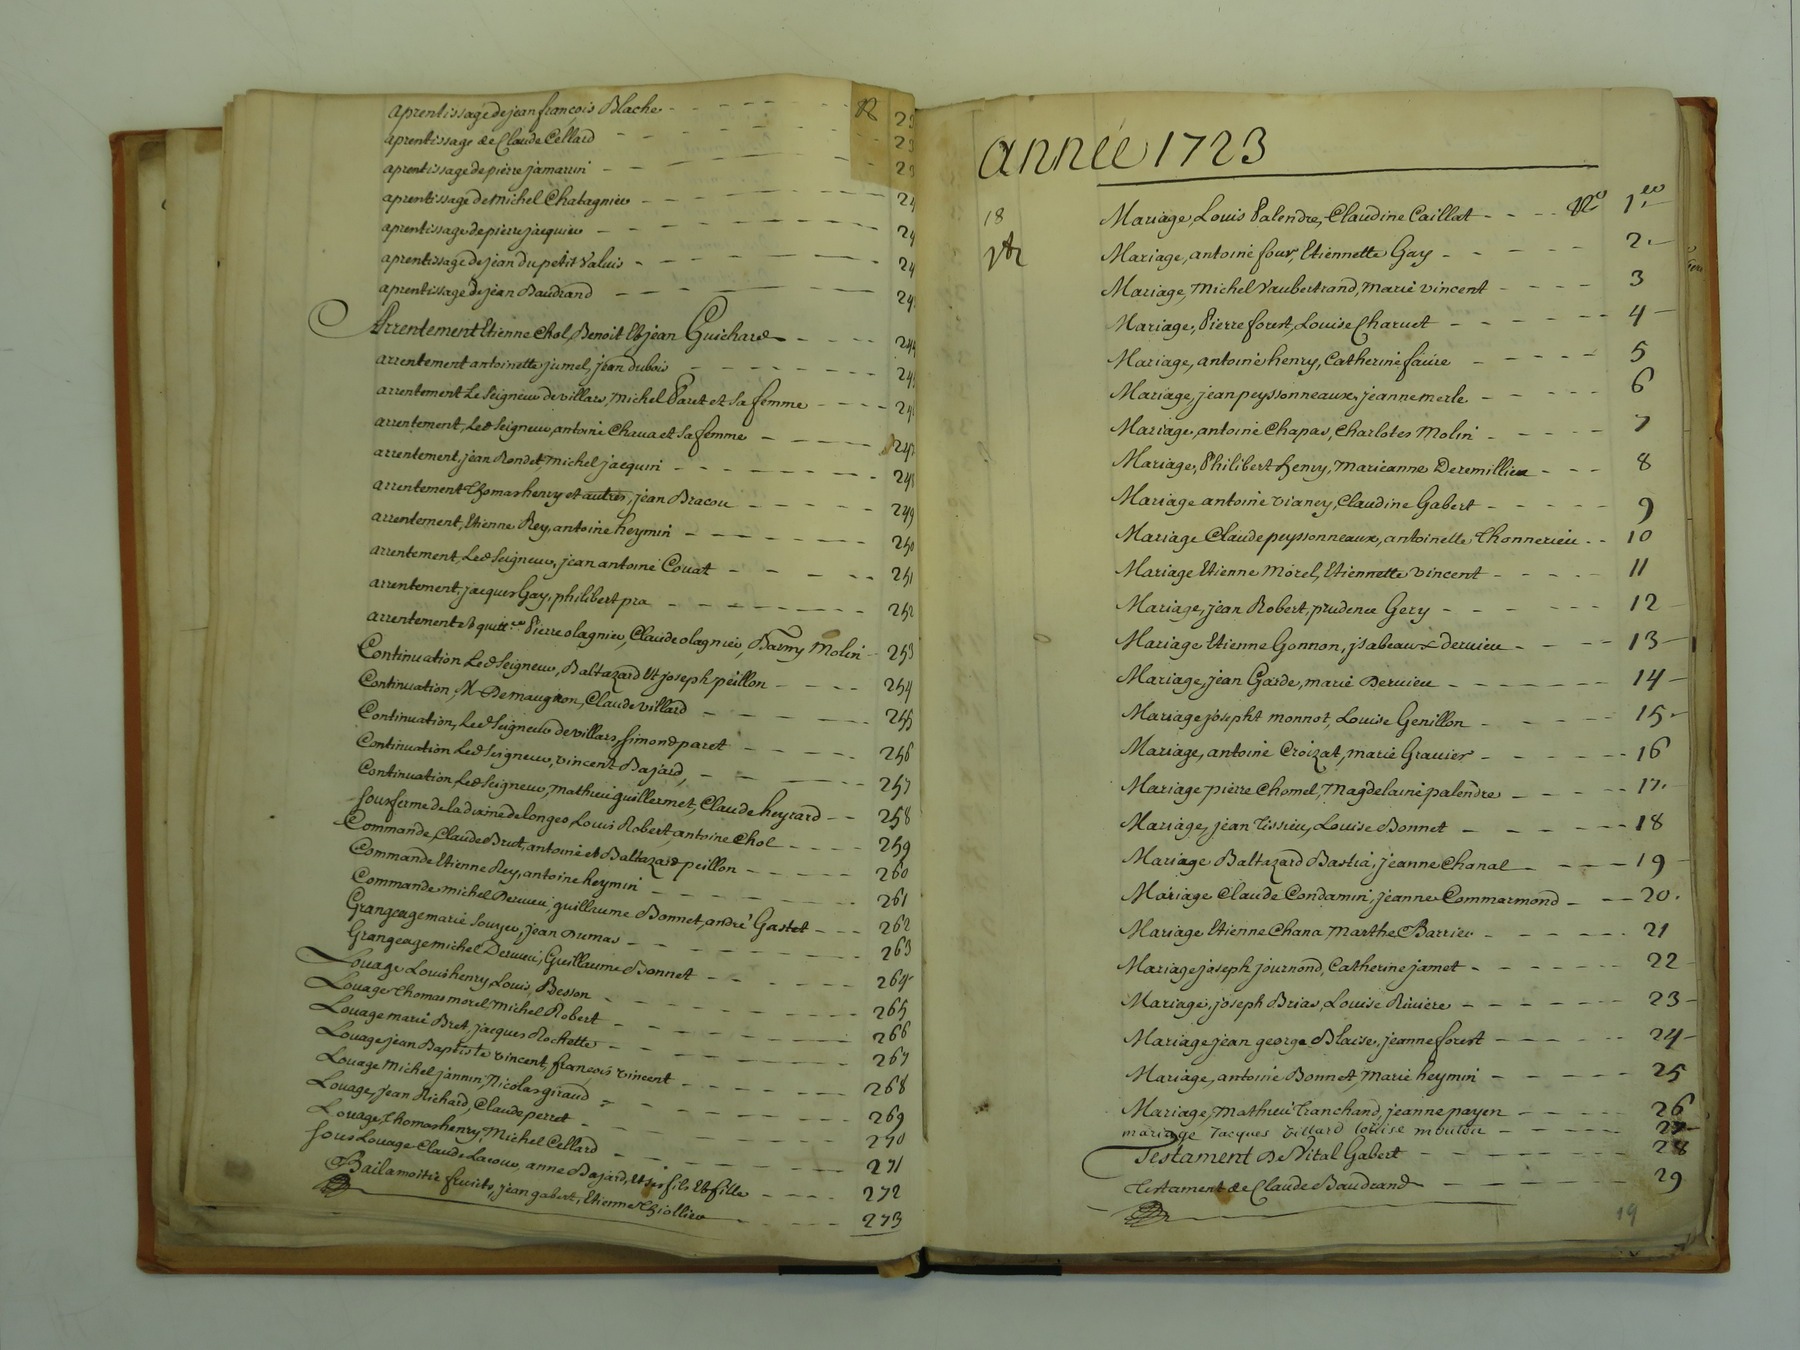 aprentissage de jean francois Blache - - - - N 23
aprentissage de Claude Cellard - - - - 23
aprentissage de pierre jamarin - - - - 23
aprentissage de Michel Chatagnier - - - - 24
aprentissage de pierre jacquier - - - - 24
aprentissage de jean du petit Valuis - - - - 24
aprentissage de jean Baudrand - - - - 24
Arrentement Etienne Chol, Benoit Et jean Guichard - - - - 244
arrentement antoinette jumel, jean dubois - - - - 24
arrentement Le Seigneur de villars, michel Paret et sa femme - - - - 24
arrentement, Led Seigneur, antoine Chava et sa femme - - - - 247
arrentement, jean Rondet, michel jacquin - - - - 248
arrentement Thomas henry et autres, jean Bracou - - - - 249
arrentement, Etienne Rey, antoine heymin - - - - 250
arrentement, Led Seigneur, jean antoine Couat - - - - 251
arrentement, jacques Gay, philibert pra - - - - 252
arrentement et quitt.ce Pierre olagnier, Claude olagnier, Barny Molin - - 253
Continuation Led Seigneur, Baltazard Et joseph peillon - - - - 254
Continuation, M Demaugron, Claude villard - - - - 255
Continuation, Led Seigneur de villars, simond paret - - - - 256
Continuation Led Seigneur, vincent Bajard, - - - - 257
Continuation, Led Seigneur, mathieu guillermet, Claude heyrard - - 258
sousferme de la dixme de longes, Louis Robert, antoine Chol - - - - 259
Commande, Claude Brut, antoine et Baltazard peillon - - - - 260
Commande Etienne Rey, antoine heymin - - - - 261
Commande michel Dervieu, guillaume Bonnet, andré Gastet - - - 262
Grangeage marie Souzer, jean Dumas - - - - 263
Grangeage michel Dervieu, Guillaume Bonnet - - - - 264
Louage Louis henry, Louis Besson - - - - 265
Louage Thomas morel, michel Robert - - - - 266
Louage marie Bret, jacques Rochette - - - - 267
Louage jean Baptiste vincent, francois vincent - - - - 268
Louage Michel jannin, Nicolas giraud - - - - 269
Louage, jean Richard, Claude perret - - - - 270
Louage, Thomas henry, Michel Cellard - - - - 271
sous Louage Claude Lacour, anne Bajard, Et ses fils Et fille - - - - 272
Bail a moitié fruits, jean gabert, Etienne Thiollier - - - - 273
année 1723
18
Mariage, Louis Palendre, Claudine Caillat - - - - N.o 1.er
Mariage, antoine four, Etiennette Gay - - - - 2.
Mariage, Michel Vaubertrand, marie vincent - - - - 3
Mariage, Pierre forest, Louise Charvet - - - - 4
Mariage, antoine henry, Catherine faure - - - - 5
Mariage, jean peyssonneaux, jeanne merle - - - - 6
Mariage, antoine Chapas, Charlotes Molin - - - - 7
Mariage, Philibert henry, Marieanne Deremillieu - - - 8
Mariage antoine vianey, Claudine Gabert - - - - 9
Mariage Claude peyssonneaux, antoinette Thonnerieu - - 10
Mariage Etienne Morel, Etiennette vincent - - - - 11
Mariage, jean Robert, prudence Gery - - - - 12
Mariage Etienne Gonnon, jsabeaux dervieu - - - - 13
Mariage, jean Garde, marie Dervieu - - - - 14
Mariage josepht monnot, Louise Genillon - - - - 15
Mariage, antoine Croizat, marie Gravier - - - - 16
Mariage pierre Chomel, Magdelaine palendre - - - - 17.
Mariage, jean Tissieu, Louise Bonnet - - - - 18
Mariage Baltazard Bastia, jeanne Chanal - - - - 19
Mariage Claude Condamin, jeanne Commarmond - - - 20.
Mariage Etienne Chana, Marthe Barrier - - - - 21
Mariage joseph journond, Catherine jamet - - - - 22
Mariage, joseph Brias, Louise Riviere - - - - 23
Mariage jean george Blaise, jeanne forest - - - - 24
Mariage, antoine Bonnet, marie heymin - - - - 25
Mariage, Mathieu Tranchand, jeanne payen - - - - 26
mariage Jacques villard loüise moulou - - - - 27
Testament De Vital Gabert - - - - 28
Testament de Claude Baudrand - - - - 29
19